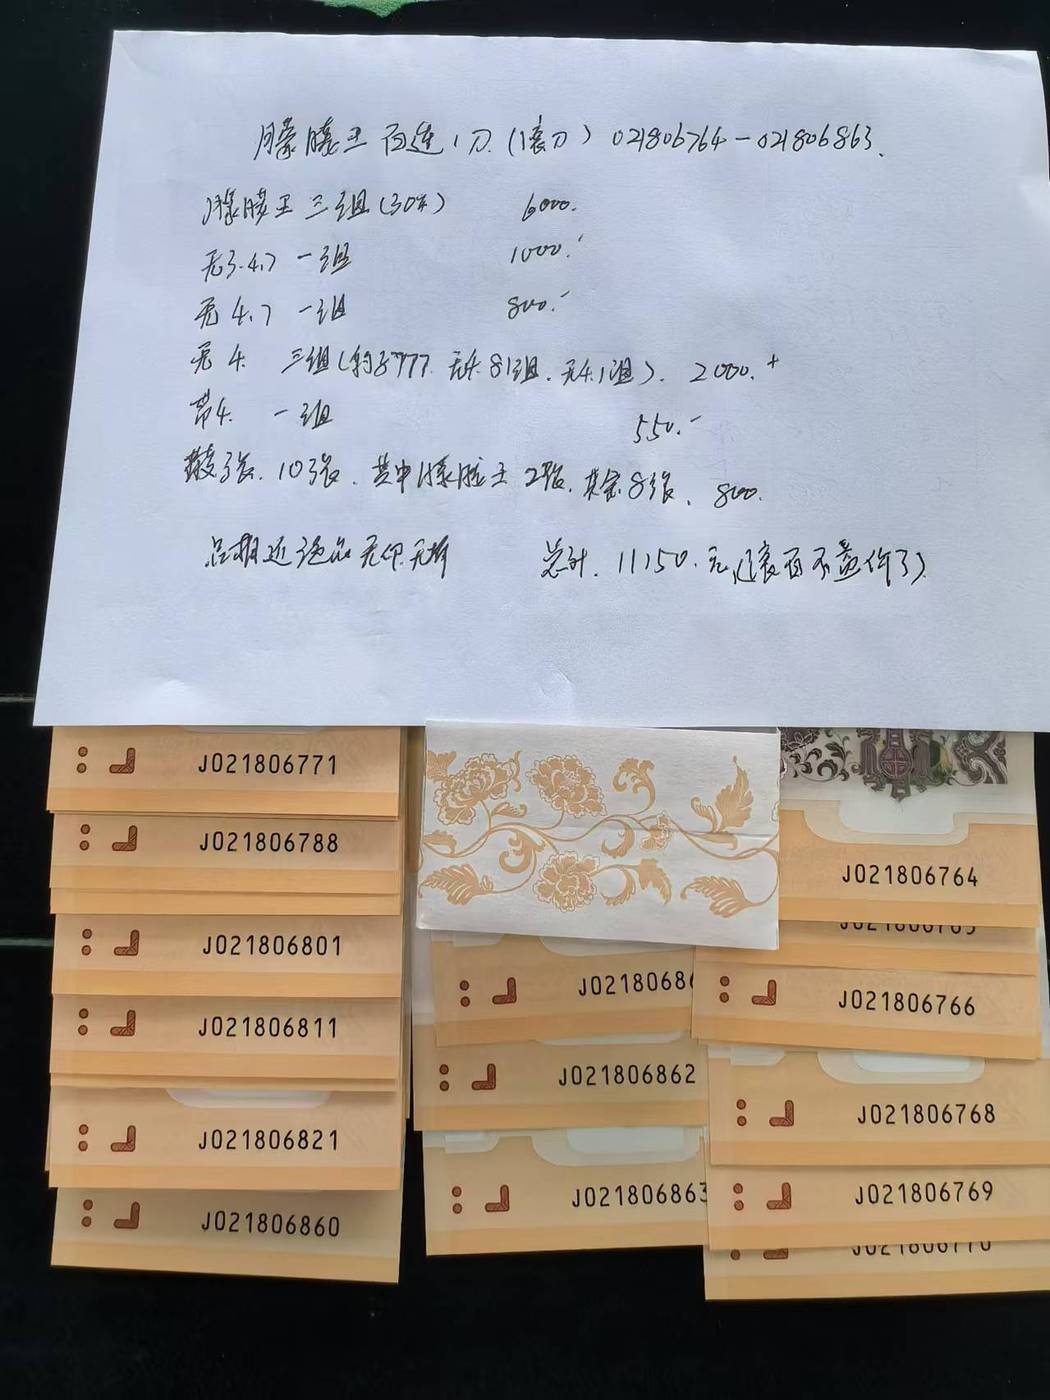 朦胧王 百连1刀.(滚刀) 021806764-021806863.
朦胧王 三组(30张) 6000.
无3.4.7 一组 1000.-
无4.7 一组 800.-
无4. 三组( 777. 无4. 81组. 无4.1组). 2000.+
带4. 一组 550.-
散张. 10张. 其中朦胧王2张. 其余8张. 800.
品相近绝品无印无斥 总计. 11150.元(滚百不益价了)
J021806771
J021806788
J021806801
J021806811
J021806821
J021806860
J02180686
J021806862
J021806863
J021806764
J021806765
J021806766
J021806768
J021806769
J021806770